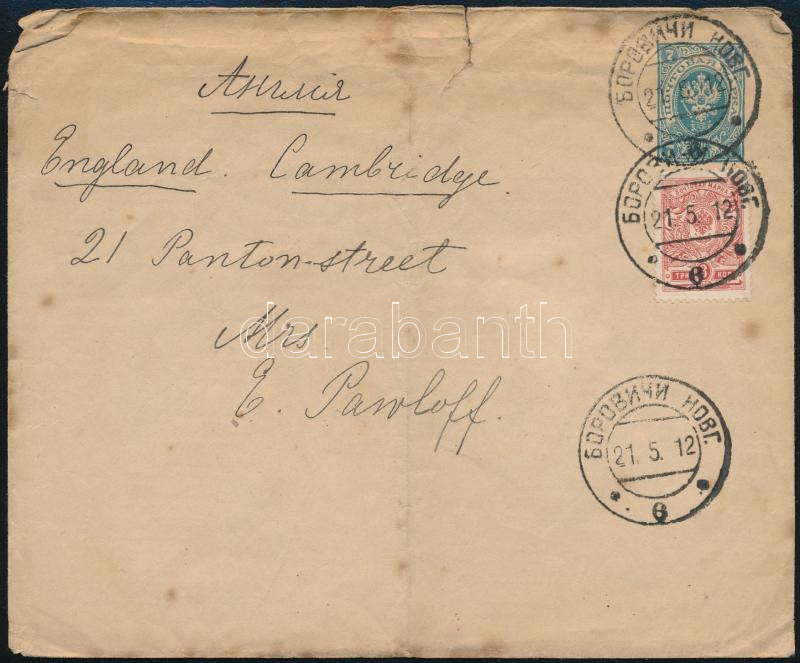 Англія
England. Cambridge.
21 Panton-street
Mrs
E. Pawloff.
7
ПОЧТОВАЯ
БОРОВИЧИ НОВГ.
БОРОВИЧИ НОВГ.
21.5.12
6
ТРИ 3 КОП
БОРОВИЧИ НОВГ.
21.5.12
6
darabanth